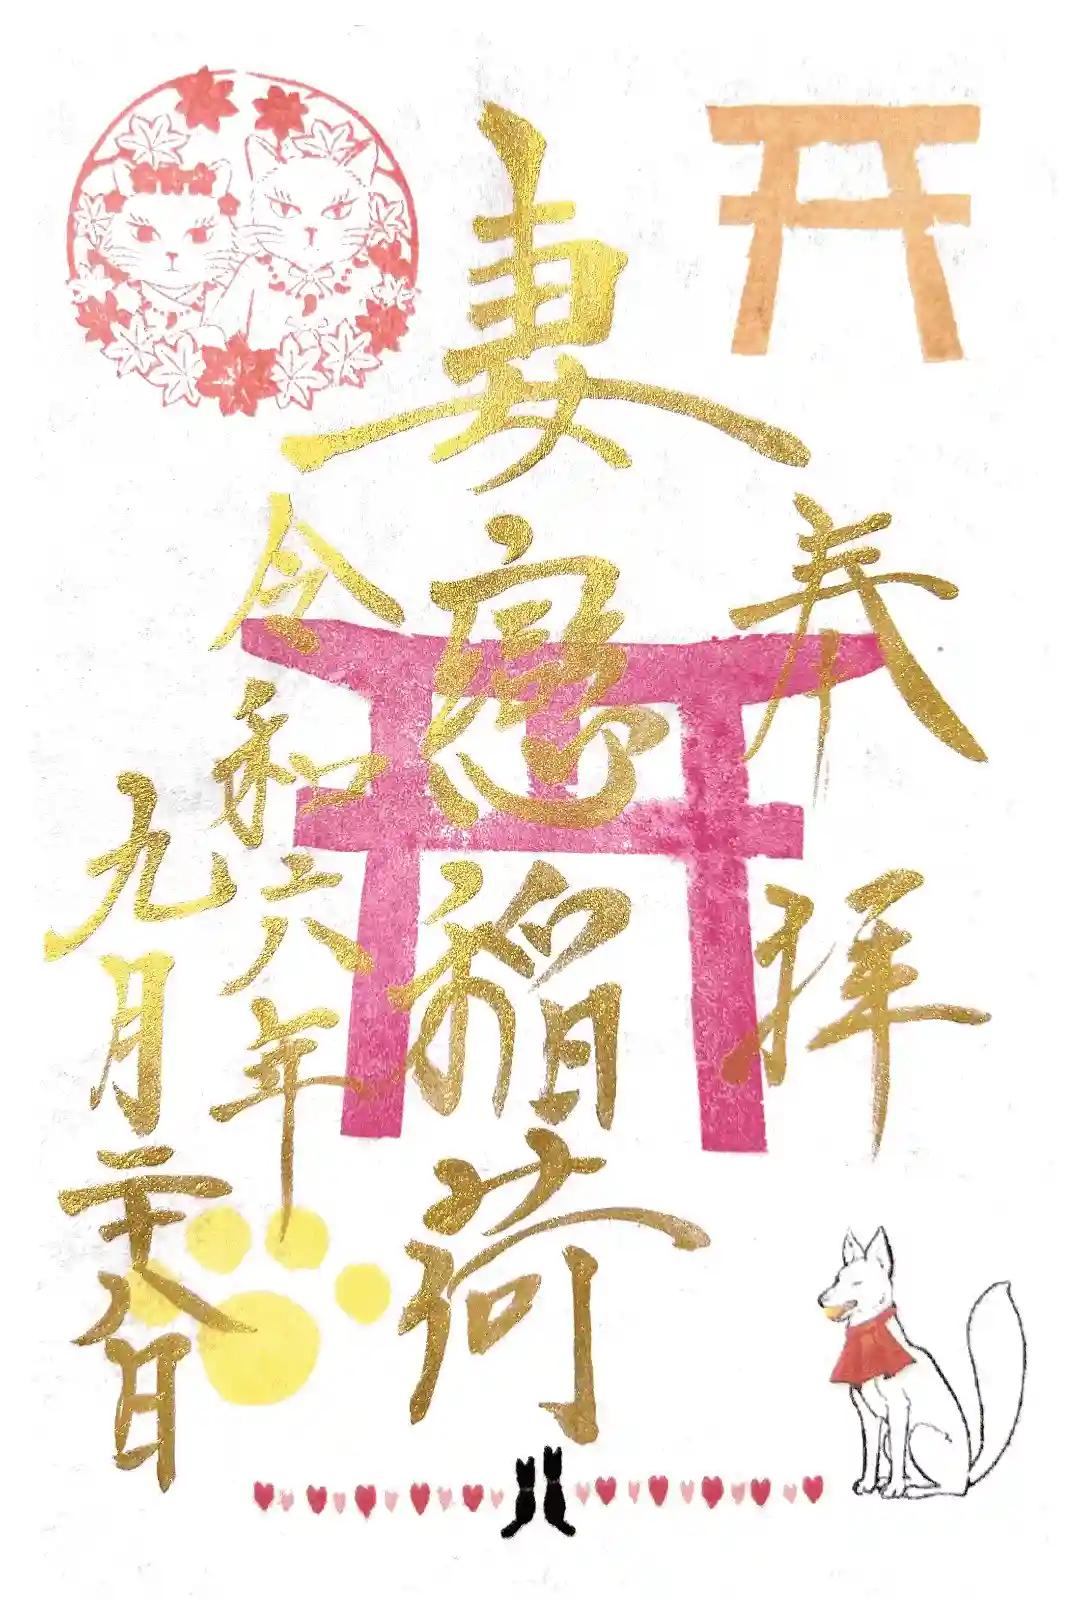 奉拝
妻戀稲荷
令和六年
九月二十八日